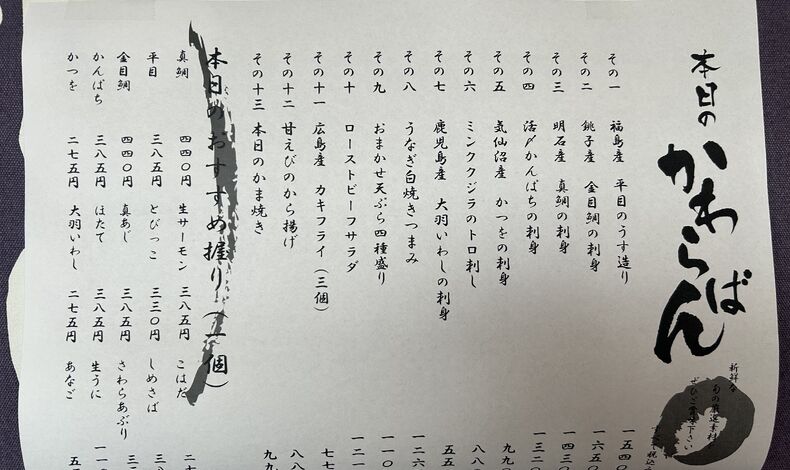 本日のかわらばん
新鮮な
旬の厳選素材
ぜひご賞味下さい
税込
その一 福島産 平目のうす造り 一五四〇
その二 銚子産 金目鯛の刺身 一六五〇
その三 明石産 真鯛の刺身 一四三〇
その四 活〆かんぱちの刺身 一三二〇
その五 気仙沼産 かつをの刺身 九九
その六 ミンククジラのトロ刺し 八八
その七 鹿児島産 大羽いわしの刺身 五五
その八 うなぎ白焼きつまみ 一二六
その九 おまかせ天ぷら四種盛り 一一〇
その十 ローストビーフサラダ 一二一
その十一 広島産 カキフライ(三個) 七七
その十二 甘えびのから揚げ 八八
その十三 本日のかま焼き 九九
本日のおすすめ握り(一個)
真鯛 四四〇円 生サーモン 三八五円 こはだ 二
平目 三八五円 とびっこ 三三〇円 しめさば 三
金目鯛 四四〇円 真あじ 三八五円 さわらあぶり 三
かんぱち 三八五円 ほたて 三八五円 生うに 一一
かつを 二七五円 大羽いわし 二七五円 あなご 五